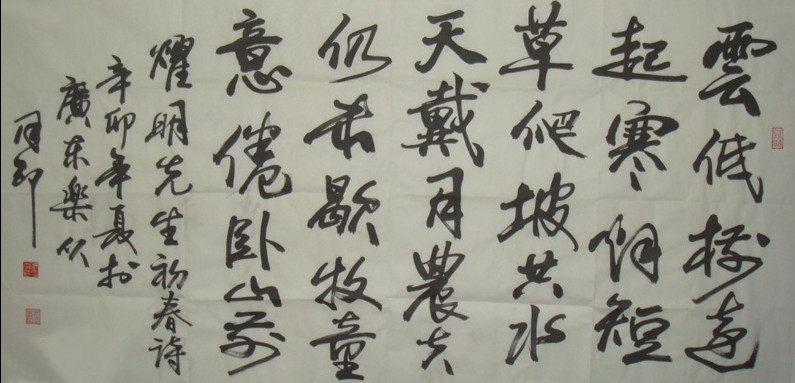 雲低樹遠
起寒烟短
草爬坡共水
天戴月農夫
仍未歇牧童
意倦卧山前
耀明先生初春詩
辛卯年夏於
廣东樂从